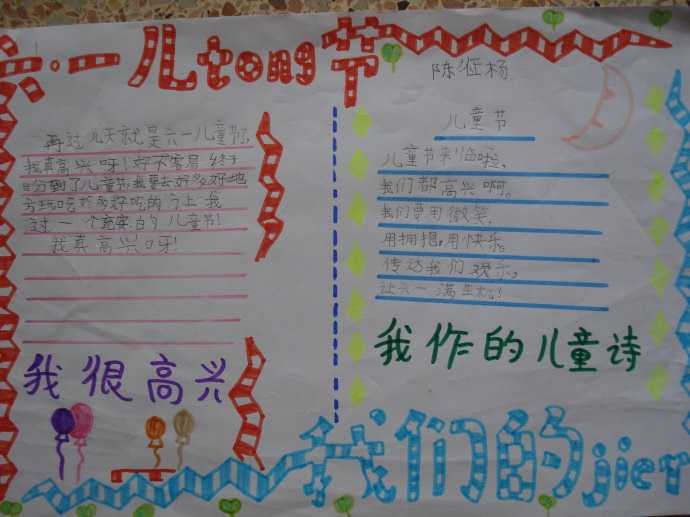 六·一儿tong节
陈征杨
再过几天就是六一儿童节了,
我真高兴呀!好不容易终于
盼到了儿童节我要去好多好地
方玩吃好多好吃的
过一个充实的儿童节!
我真高兴呀!
我很高兴
儿童节
儿童节来临啦,
我们都高兴啊。
我们要用微笑,
用拥抱,用快乐。
传达我们欢乐。
让六一满生机!
我作的儿童诗
我们的jier